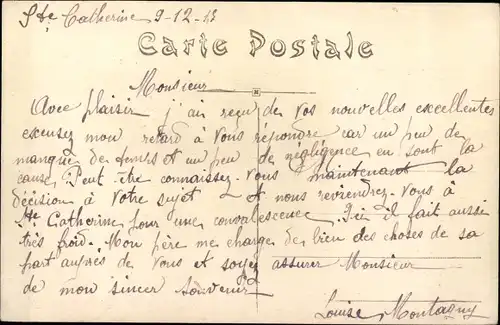 Ste Catherine 9-12-13
Carte Postale
Monsieur
Avec plaisir j'ai reçu de vos nouvelles excellentes
excusez mon retard à vous répondre car un peu de
manque de temps et un peu de négligence en sont la
cause. Peut-être connaissez-vous maintenant la
décision à votre sujet et nous reviendrez-vous à
Ste Catherine pour une convalescence. Ici il fait aussi
très froid. Mon père me charge de bien des choses de sa
part auprès de vous et soyez assurer Monsieur
de mon sincer souvenir
Louise Montagny